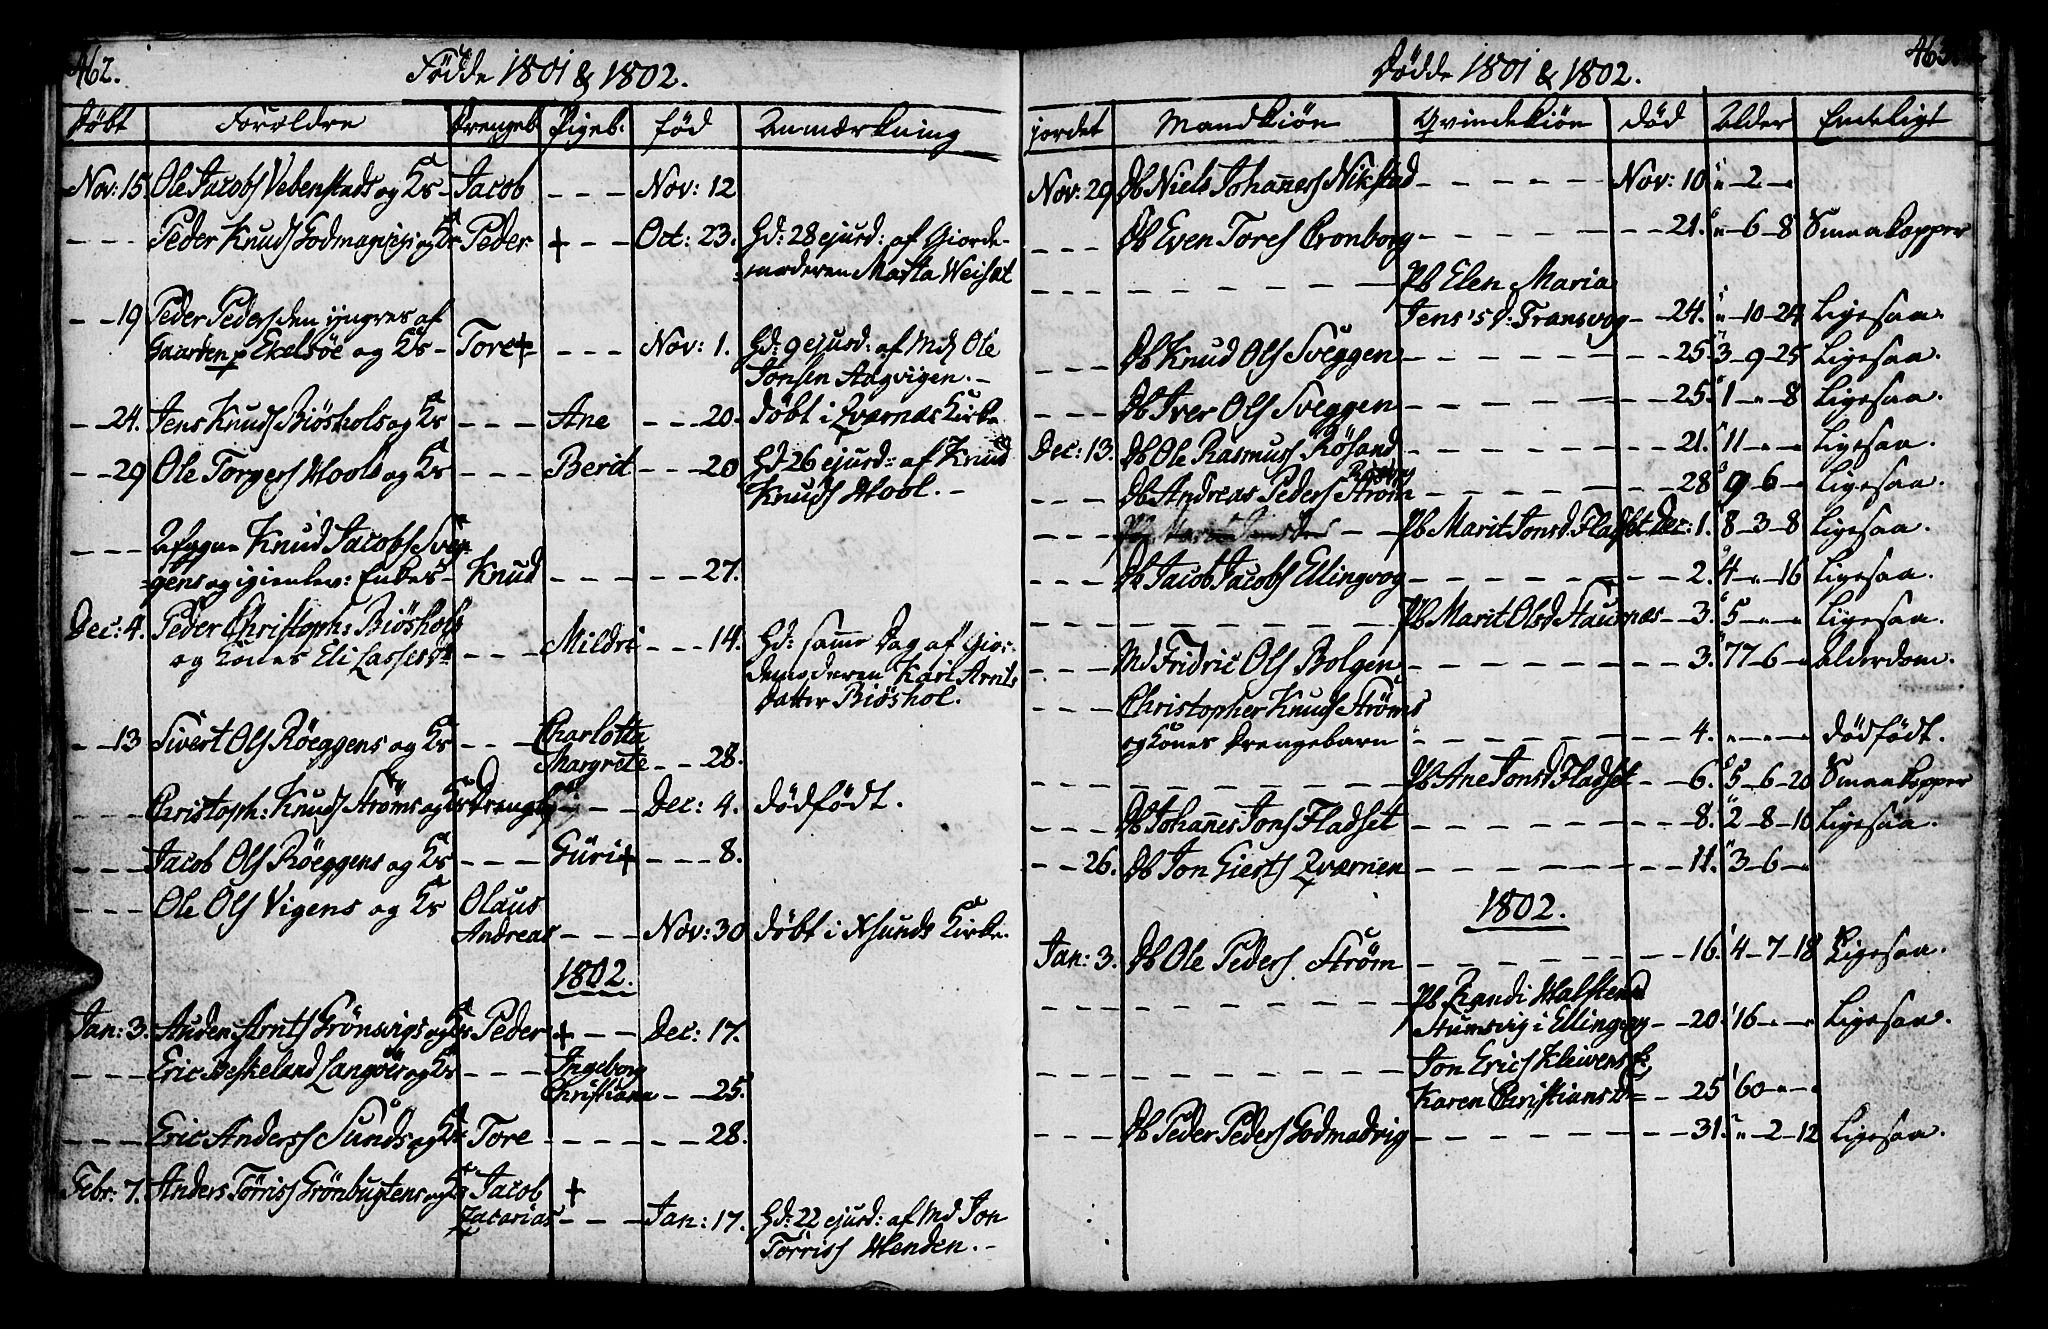 462.
Födde 1801 & 1802.
Döbt Foreldre Drengeb Pigeb: född Anmærkning
Nov: 15 Ole Jacobs Vebenstads og Ks Jacob - - - Nov: 12
- - - Peder Knuds Godmag og Ks Peder + - - Oct: 23. Hd: 28 ejusd: af Giorde-
moderen Marta Weiset
- - 19 Peder Peders den yngres af
Gaarden Ekelsöe og Ks - Tore + - - - Nov: 1. Hd: 9 ejusd: af Md Ole
Jonsen Aagvigen. -
- - 24. Jens Knuds Biöshols og Ks - - - Ane - - - 20. Döbt i Qværnæs Kirke
- - 29 Ole Torgers Mools og Ks - - - Berit - - - 20 Hd: 26 ejusd: af Knud
Knuds Mool. -
- - - Afgangne Knud Jacobs Sveg-
gens og igienlev: Enkes - Knud - - - - - - 27.
Dec: 4. Peder Christoph: Biöshols
og Kones Eli Lassesdr - - - Mildri - - - 14. Hd: samme Dag af Gior-
demoderen Kari Arnts
Datter Biöshol.
- - 13 Sivert Ols Röeggens og Ks - - - Charlotta
Margrete - - 28.
- - - Christoph: Knuds Ströms og Ks Drengb - - - Dec: 4. dödfödt.
- - - Jacob Ols Röeggens og Ks - - - Guri + - - - 8.
- - - Ole Ols Vigens og Ks Olaus
Andreas - - - Nov: 30 döbt i Xsunds Kirke.
1802.
Jan: 3. Auden Arnts Grönsvigs og Ks Peder + - - Dec: 17.
- - - Eric Beskeland Langöes og Ks - - - Ingeborg
Christiana - - 25.
- - - Eric Anders Sunds og Ks Tore - - - - - - 28.
Febr: 7. Anders Törris Grönbugtens og Ks Jacob +
Zacarias - - - Jan: 17. Hd: 22 ejusd: af Md Jon
Törris Henden. -
463.
Dödde 1801 & 1802.
jordet Mandkiön Qvindekiön död Alder Endeligt
Nov: 29 Db Niels Johannes Nikstad - - - - - Nov: 10 " - 2 - "
- - - Db Even Tores Cronborg - - - - - - - 21. " - 6 - 8 Smaakopper
- - - - - - - - - Pb Elen Maria
Jens's d: Transvog - - 24. " - 10 - 24 Ligesaa.
- - - Db Knud Ols Sveggen - - - - - - - 25. 3 - 9 - 25 Ligesaa.
- - - Db Iver Ols Sveggen - - - - - - - 25. 1 - " - 8 Ligesaa.
Dec: 13. Db Ole Rasmus Rösand - - - - - - - 21. 11 - " - " Ligesaa.
- - - Db Andreas Peders Ström - - - - - - - 28 9 - 6 - " Ligesaa.
- - - Pb Marit Jonsd. Fladset Dec: 1. 8 - 3 - 8 Ligesaa.
- - - Db Jacob Jacobs Ellingvog - - - - - - - 2. 4 - " - 16 Ligesaa.
- - - - - - - - - Pb Marit Olsd Staurnæs - - 3. 5 - " - " Ligesaa.
- - - Md Fridric Ols Bolgen - - - - - - - 3. 77 - 6 - " Alderdom.
- - - Christopher Knuds Ströms
og Kones Drengebarn - - - - - - - 4. " - " - " Dödfödt.
- - - - - - - - - Pb Ane Jonsd. Fladset - - 6. 5 - 6 - 20 Smaakopper
- - - Db Johannes Jons Fladset - - - - - - - 8. 2 - 8 - 10 Ligesaa.
- - 26. Db Jon Gierts Qværnen - - - - - - - 11. 3 - 6 - "
1802.
Jan: 3. Db Ole Peders Ström - - - - - - - 16. 4 - 7 - 18 Ligesaa.
- - - - - - - - - Pb Randi Halstensd
Stumsvig i Ellingvog - - 20. 16 - " - " Ligesaa.
- - - - - - - - - Jon Erics Kleivens K:
Karen Christians Dr - - 25 60 - " - "
- - - Db Peder Peders Godmadvig - - - - - - - 31. " - 2 - 12 Ligesaa.